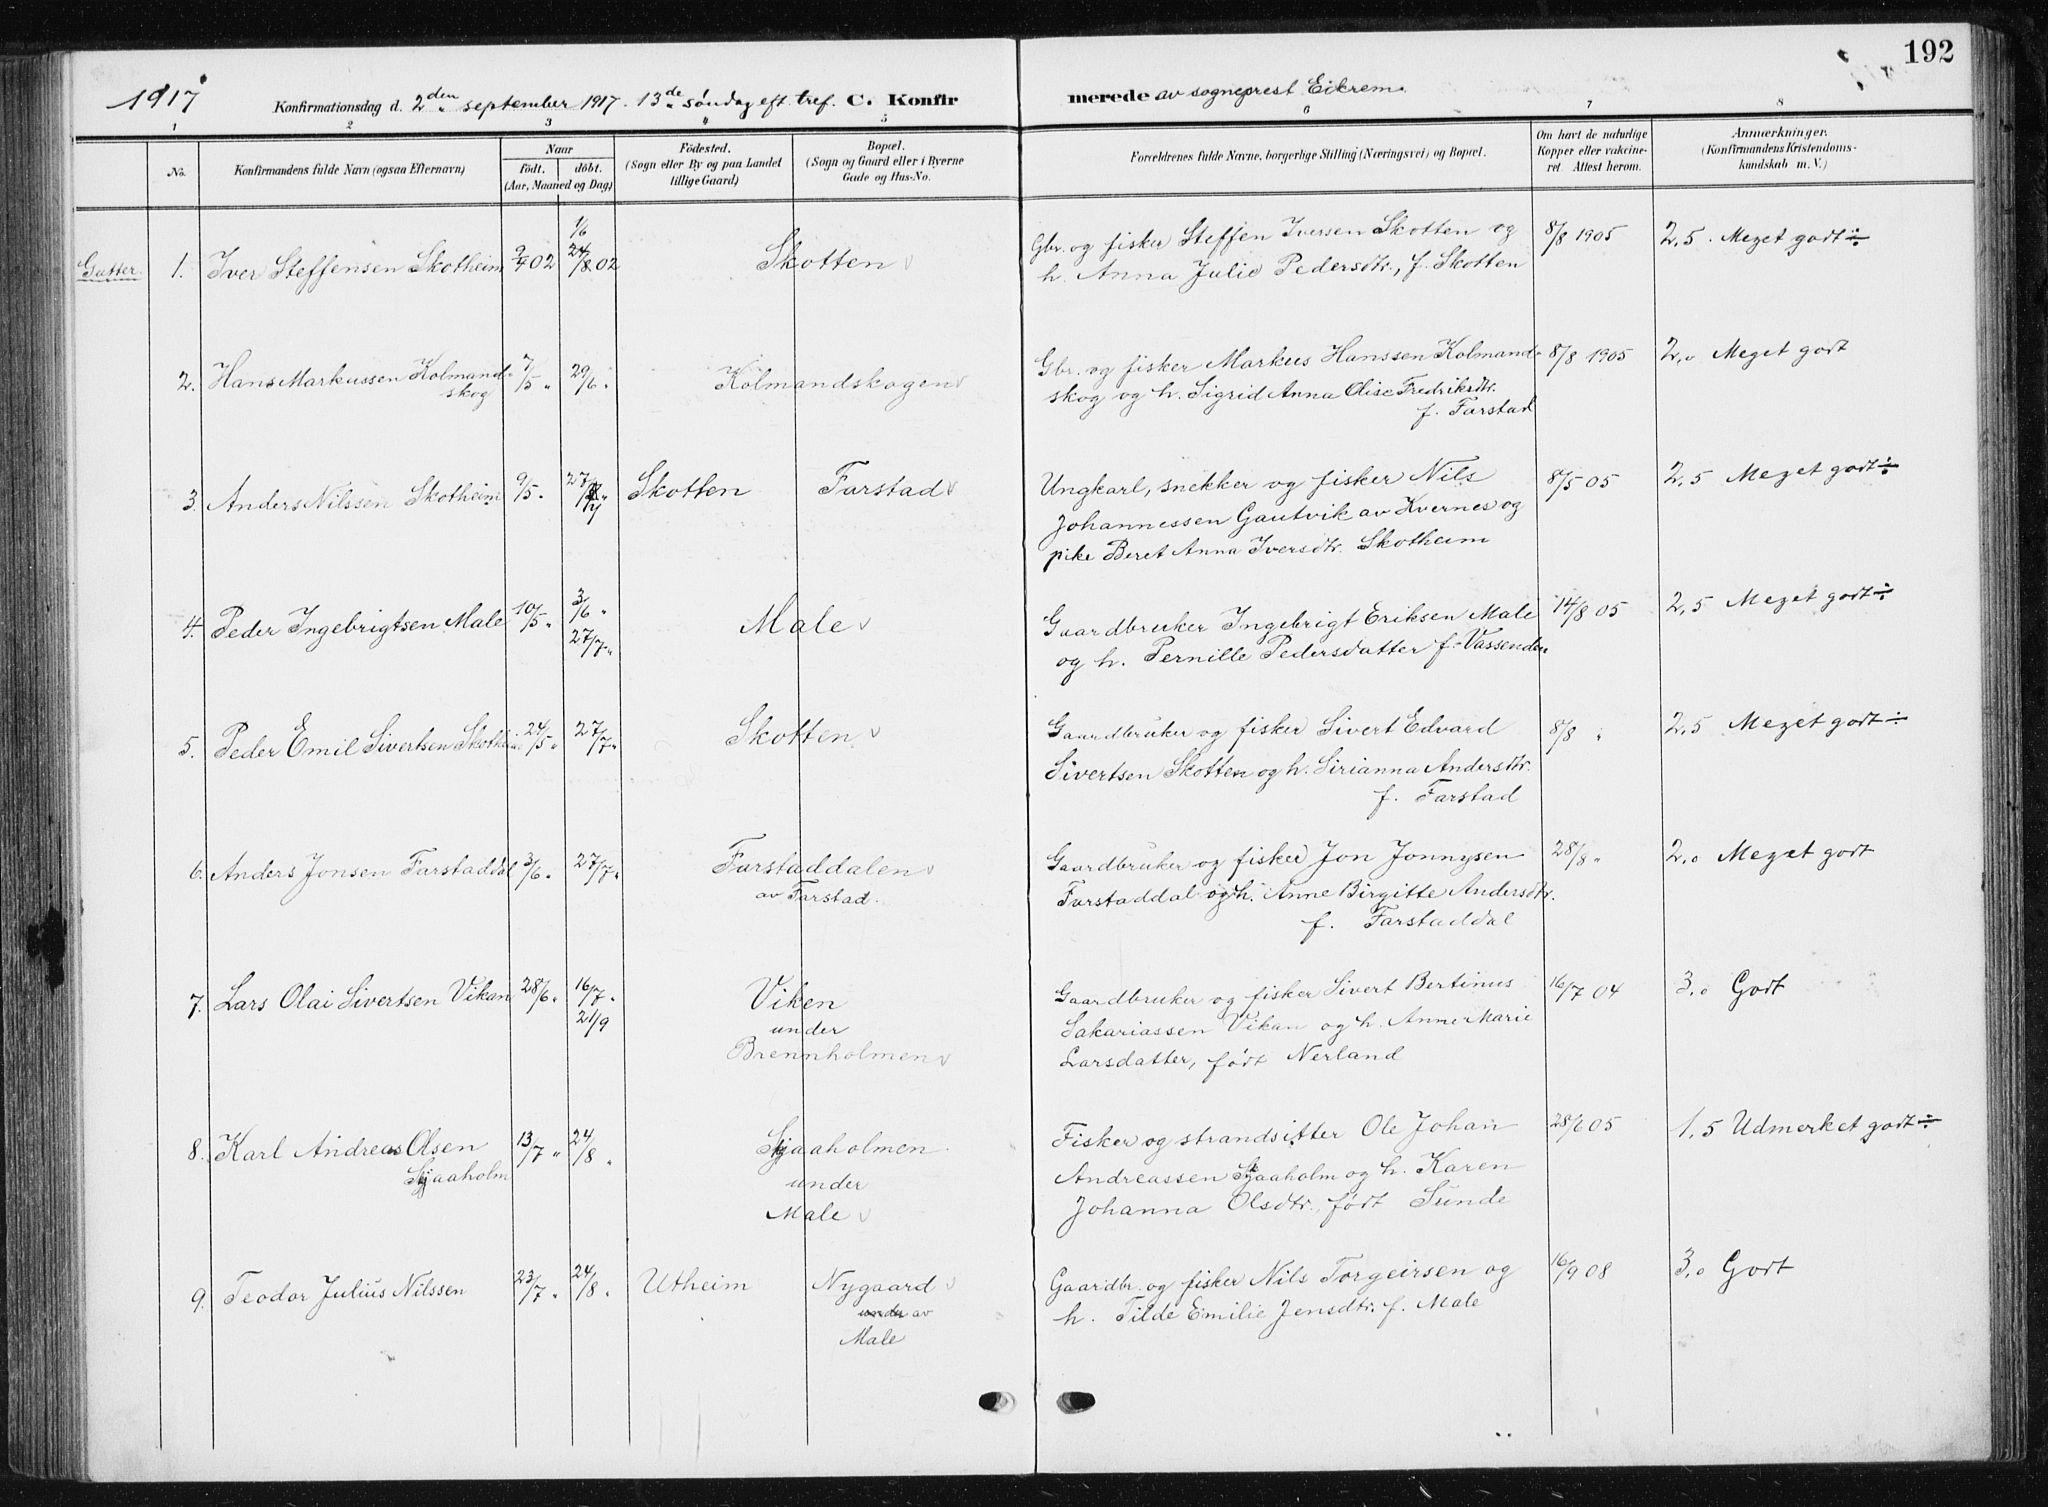 192
1917
Konfirmationsdag d. 2den september 1917. 13de søndag eft. tref. C. Konfirmerede av sogneprest Eikrem.
1 2 3 4 5 6 7 8
No.
Konfirmandens fulde Navn (ogsaa Efternavn)
Naar
født. døbt.
(Aar, Maaned og Dag)
Fødested.
(Sogn eller By og paa Landet
tillige Gaard)
Bopæl.
(Sogn og Gaard eller i Byerne
Gade og Hus-No.
Forældrenes fulde Navne, borgerlige Stilling (Næringsvei) og Bopæl.
Om havt de naturlige
Kopper eller vakcine-
ret. Attest herom.
Anmærkninger.
(Konfirmandens Kristendoms-
kundskab m. V.)
Gutter.
1. Iver Steffensen Skotheim 9/4 02 1/6 24/8 02 Skotten
Gbr. og fisker Steffen Iversen Skotten og
h. Anna Julie Pedersdtr., f. Skotten
8/8 1905 2,5. Meget godt ÷
2. Hans Markussen Kolmand-
skog 7/5 " 29/6 " Kolmandskogen
Gbr. og fisker Markus Hanssen Kolmand-
skog og h. Sigrid Anna Olise Fredriksdtr.
f. Farstad
8/8 1905 2,0 Meget godt
3. Anders Nilssen Skotheim 9/5 " 27/7 " Skotten Farstad
Ungkarl, snekker og fisker Nils
Johannessen Gautvik av Kvernes og
pike Beret Anna Iversdtr. Skotheim
8/5 05 2,5 Meget godt ÷
4. Peder Ingebrigtsen Male 10/5 " 3/6 " 27/7 " Male
Gaardbruker Ingebrigt Eriksen Male
og h. Pernille Pedersdatter f. Vassenden
14/8 05 2,5 Meget godt ÷
5. Peder Emil Sivertsen Skotheim 24/5 " 27/7 " Skotten
Gaardbruker og fisker Sivert Edvard
Sivertsen Skotten og h. Sirianna Andersdtr.
f. Farstad
8/8 " 2,5 Meget godt ÷
6. Anders Jonsen Farstaddal 3/6 " 27/7 " Farstaddalen
av Farstad.
Gaardbruker og fisker Jon Jonnysen
Farstaddal og h. Anne Birgitte Andersdtr.
f. Farstaddal
28/8 " 2,0 Meget godt
7. Lars Olai Sivertsen Vikan 28/6 " 16/7 " 21/9 Viken
under
Brennholmen
Gaardbruker og fisker Sivert Bertinus
Sakariassen Vikan og h. Anne Marie
Larsdatter, født Nerland
16/7 04 3,0 Godt
8. Karl Andreas Olsen
Skjaaholm 13/7 " 24/8 " Skjaaholmen
under
Male
Fisker og strandsitter Ole Johan
Andreassen Skjaaholm og h. Karen
Johanna Olsdtr., født Sunde
28/6 05 1,5 Udmerket godt ÷
9. Teodor Julius Nilssen 23/7 " 24/8 " Utheim Nygaard
under av
Male
Gaardbr. og fisker Nils Torgeirsen og
h. Tilde Emilie Jensdtr. f. Male
16/9 08 3,0 Godt